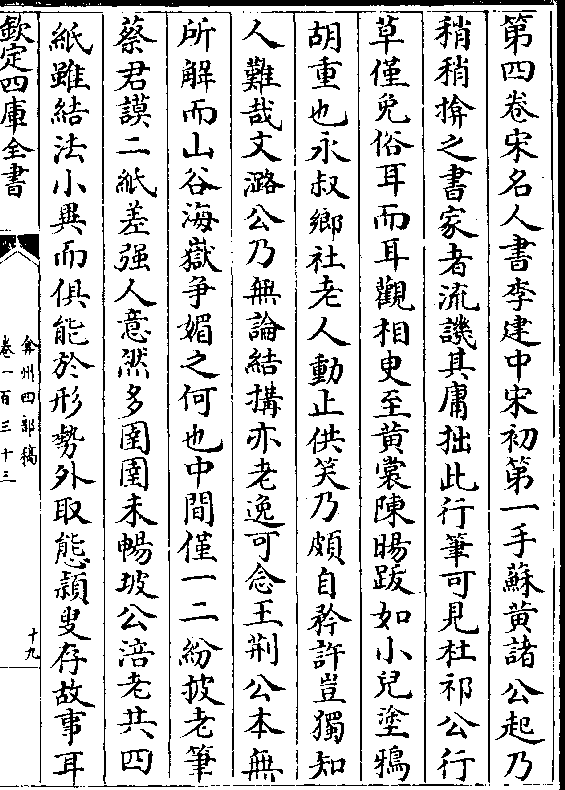 第四卷宋名人書李建中宋初第一手蘇黄諸公起乃
稍稍揜之書家者流譏其庸拙此行筆可見杜祁公行
草僅免俗耳而耳觀相更至黄裳陳暘跋如小兒塗鴉
胡重也永叔鄉社老人動止供笑乃頗自矜許豈獨知
人難哉文潞公乃無論結搆亦老逸可念王荆公本無
所解而山谷海嶽争媚之何也中間僅一二紛披老筆
蔡君謨二紙差强人意然多圉圉未暢坡公涪老共四
紙雖結法小異而俱能於形勢外取態潁叟存故事耳
欽定四庫全書
弇州四部稿
卷一百三十三
十九